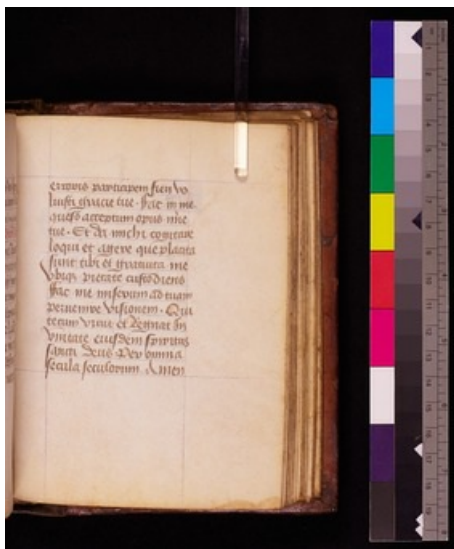 erroris participem fieri vo
luisti gratie tue. Fac in me
queso acceptum opus
tue. Et da michi cogitare
loqui et agere que placita
sunt tibi et gratuita me
vbique pietate custodiens
Fac me miserum ad tuam
peruenire visionem. Qui
tecum viuit et Regnat in
vnitate eiusdem spiritus
sancti deus Per omnia
secula seculorum Amen